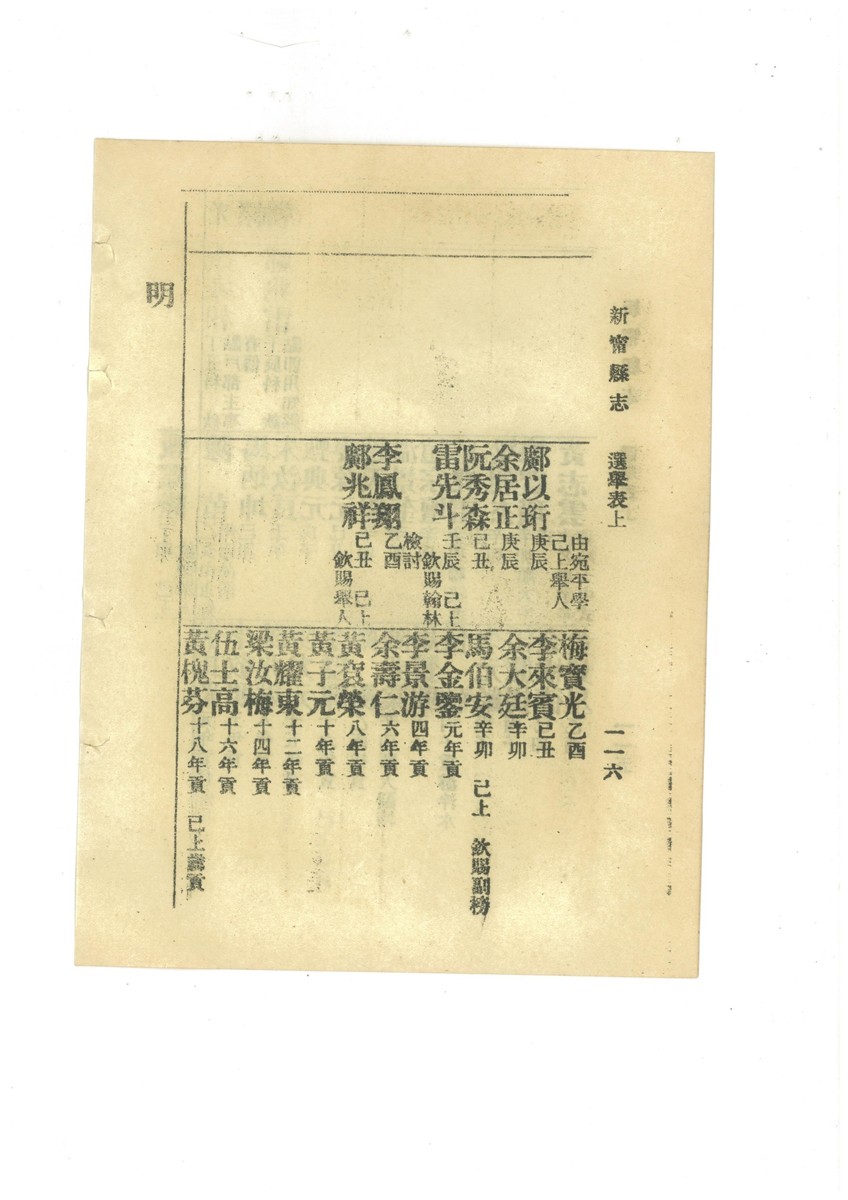 新甯縣志 選舉表上 一一六
鄺以珩 庚辰 由宛平學 已上舉人
余居正 庚辰
阮秀森 己丑
雷先斗 壬辰 已上 欽賜翰林檢討
李鳳翔 乙酉
鄺兆祥 己丑 已上 欽賜舉人
梅寶光 乙酉
李來賓 己丑
余大廷 辛卯
馬伯安 辛卯 已上 欽賜副榜
李金鑾 元年貢
李景游 四年貢
余壽仁 六年貢
黃袞榮 八年貢
黃子元 十年貢
黃耀東 十二年貢
梁汝梅 十四年貢
伍士高 十六年貢
黃槐芬 十八年貢 已上歲貢
明